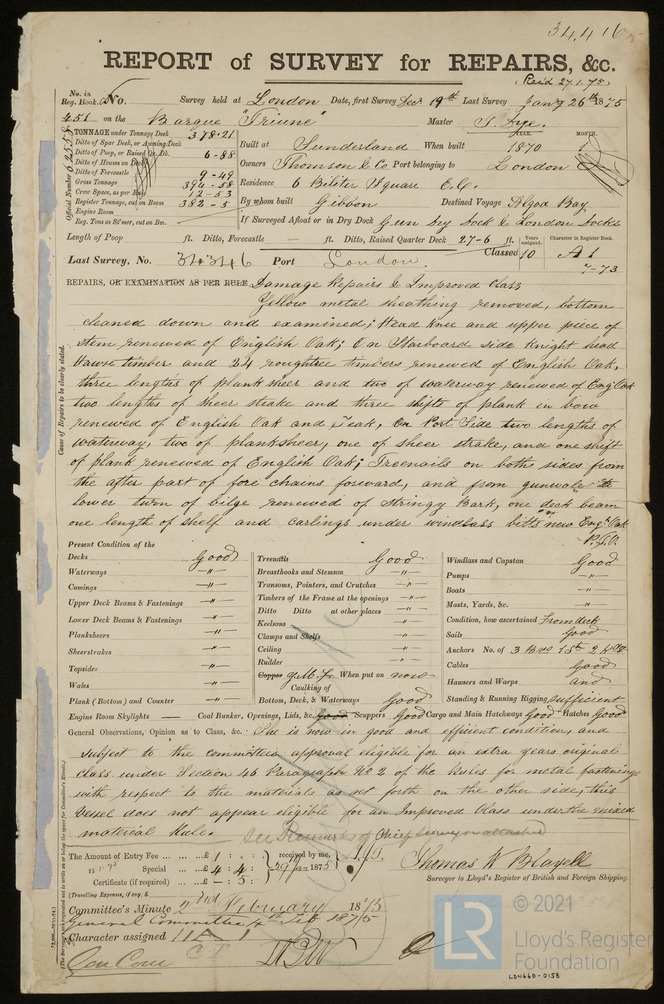 34,416
REPORT of SURVEY for REPAIRS, &c.
(Rec'd 27.1.75)
No. in Reg. Book. No. Survey held at London Date, first Survey Decr 19th Last Survey Jany 26th 1875
451 on the Barque "Triune" Master T. Dye.
TONNAGE under Tonnage Deck 378.21
Ditto of Spar Deck, or Awning Deck
Ditto of Poop, or Raised Qr. Dk. 6.88
Ditto of Houses on Deck
Ditto of Forecastle 9-49
Gross Tonnage 394-58
Crew Space, as per Rule 12-53
Register Tonnage, cut on Beam 382-5
Engine Room
Reg. Tons as St'mer, cut on Bm.
Official Number
Built at Sunderland When built YEAR. 1870 MONTH. 1
Owners Thomson & Co Port belonging to London
Residence 6 Billiter Square E.C.
By whom built Gibbon Destined Voyage Algoa Bay
If Surveyed Afloat or in Dry Dock Gun Dry Dock & London Docks
Length of Poop ft. Ditto, Forecastle — ft. Ditto, Raised Quarter Deck 27-6 ft.
Years assigned. Character in Register Book.
Last Survey, No. 34346 Port London. Classed 10 A 1
7-73
REPAIRS, OR EXAMINATION AS PER RULE Damage Repairs & Improved Class
Cause of Repairs to be clearly stated.
Yellow metal sheathing removed, bottom
cleaned down and examined; Head knee and upper piece of
stem renewed of English Oak; On Starboard side Knight head
Hawse timber and 24 roughtree timbers renewed of English Oak,
three lengths of plank sheer and two of waterway renewed of Eng Oak
two lengths of sheer strake and three shifts of plank in bow
renewed of English Oak and Teak, On Port Side two lengths of
waterway, two of planksheer, one of sheer strake, and one shift
of plank renewed of English Oak; Treenails on both sides from
the after part of fore chains forward, and from gunwale to
lower turn of bilge renewed of Stringy Bark, one deck beam
one length of shelf and carlings under windlass bitts new Engh Oak
P.T.O.
Present Condition of the
Decks Good
Waterways -"-
Comings -"-
Upper Deck Beams & Fastenings -"-
Lower Deck Beams & Fastenings -"-
Planksheers -"-
Sheerstrakes -"-
Topsides -"-
Wales -"-
Plank (Bottom) and Counter -"-
Treenails Good
Breasthooks and Stemson -"-
Transoms, Pointers, and Crutches -"-
Timbers of the Frame at the openings -"-
Ditto Ditto at other places -"-
Keelsons -"-
Clamps and Shelfs -"-
Ceiling -"-
Rudder -"-
Copper Y.M. When put on now
Caulking of
Bottom, Deck, & Waterways Good
Windlass and Capstan Good
Pumps -"-
Boats -"-
Masts, Yards, &c. -"-
Condition, how ascertained From deck
Sails Good
Anchors No. of 3 Brs 1 St 2 Kdgs
Cables Good
Hawsers and Warps and
Standing & Running Rigging sufficient
Engine Room Skylights — Coal Bunker, Openings, Lids, &c. Good Scuppers Good Cargo and Main Hatchways Good Hatches Good
General Observations, Opinion as to Class, &c. She is now in good and efficient condition, and
subject to the committee's approval eligible for an extra years original
class under Section 46 Paragraph No 2 of the Rules for metal fastenings
with respect to the materials as set forth on the other side, this
vessel does not appear eligible for an Improved Class under the mixed
material Rule.
See Remarks of Chief Surveyor attached
The Amount of Entry Fee ... ...£ 1 : . : . received by me,
Special ... ...£ 4 : 4 : 29 Jan 1875
Certificate (if required) ...£ - : 5 :
(Travelling Expenses, if any, £
Thomas W Blayell
Surveyor to Lloyd's Register of British and Foreign Shipping.
Committee's Minute 2nd February 1875
General Committee 4th Feb 1875
Character assigned 11 A 1
C.T.
© 2021
LR
Lloyd's Register
Foundation
LON660-0158